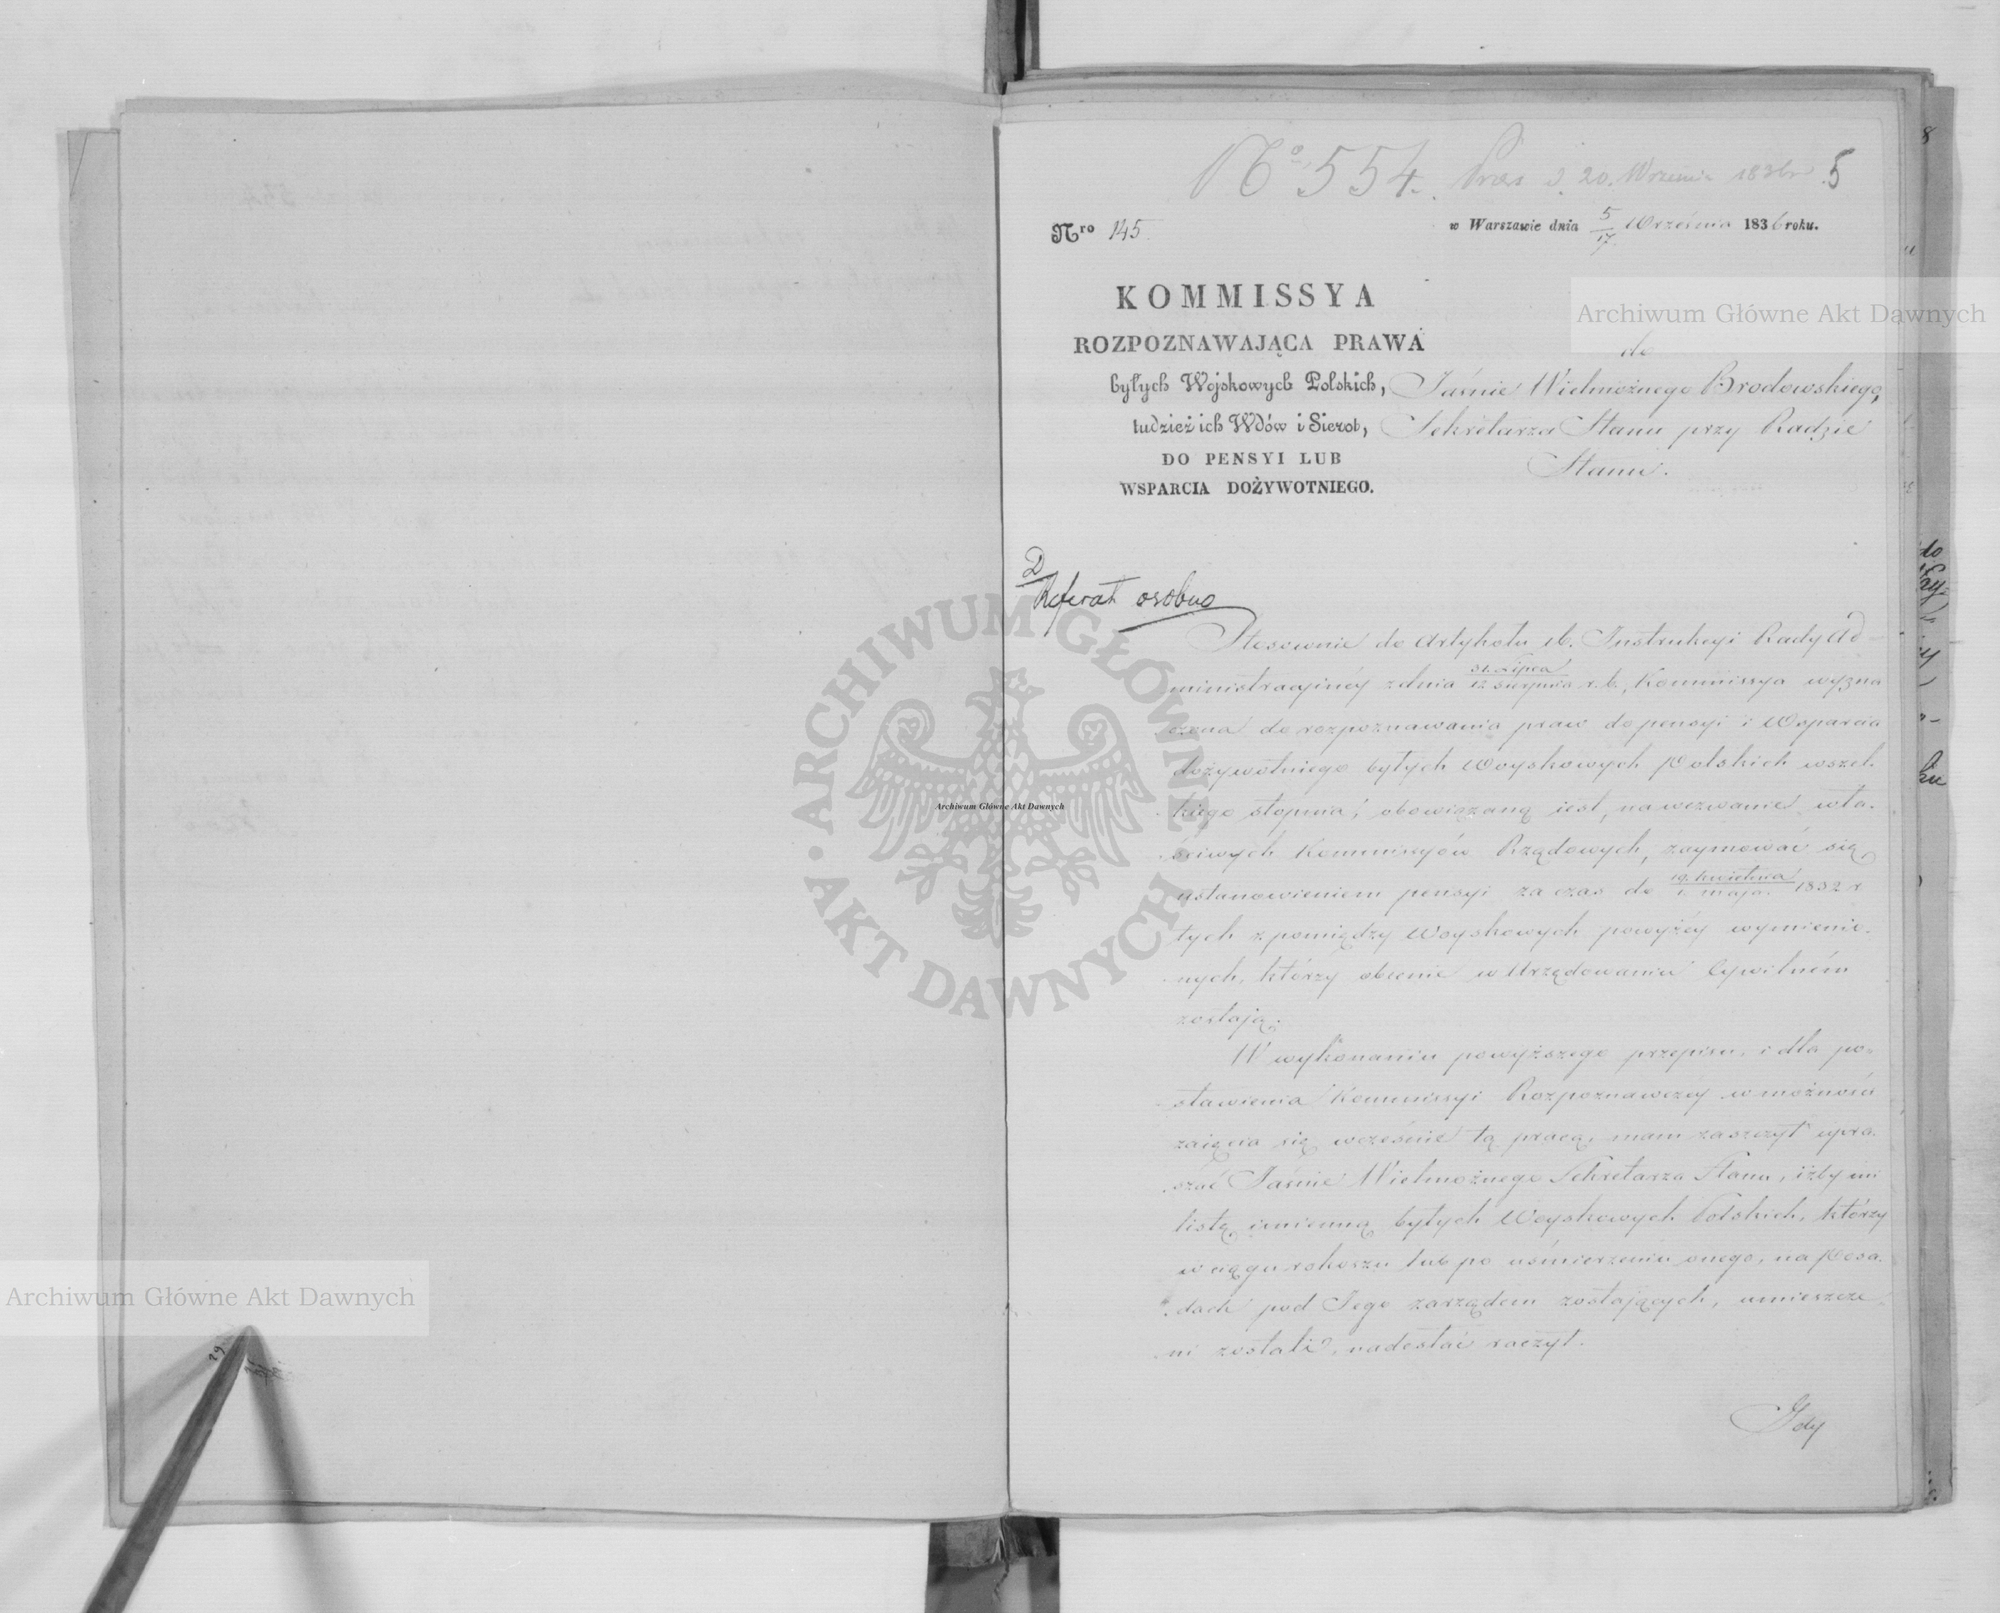 No 554. Praes d. 20. Września 1836 r 5
Nro 145. w Warszawie dnia 5/17 Września 1836 roku.
KOMMISSYA
ROZPOZNAWAJĄCA PRAWA
byłych Wojskowych Polskich,
tudzież ich Wdów i Sierot,
DO PENSYI LUB
WSPARCIA DOŻYWOTNIEGO.
do
Jaśnie Wielmożnego Brodowskiego,
Sekretarza Stanu przy Radzie
Stanu.
Referat osobno
Stosownie do Artykułu 16. Instrukcyi Rady Ad
ministracyinéy z dnia 31. Lipca / 12 Sierpnia r. b., Kommissya wyzna
czona do rozpoznawania praw do pensyi i Wsparcia
dożywotniego byłych Woyskowych Polskich wszel.
kiego stopnia, obowiązaną iest, na wezwanie wła.
sciwych Kommissyów Rządowych, zaymować się
ustanowieniem pensyi za czas do 19. kwietnia / 1. maja 1832 r
tych z pomiędzy Woyskowych powyżéy wymienio.
nych, którzy obecnie w Urzędowaniu Cywilném
zostają.
W wykonaniu powyższego przepisu, i dla po.
stawienia Kommissyi Rozpoznawczéy w możności
zaięcia się wcześnie tą pracą, mam zaszczyt upra.
szać Jaśnie Wielmożnego Sekretarza Stanu, iżby mi
listę imienną byłych Woyskowych Polskich, którzy
w ciągu rokoszu lub po uśmierzeniu onego, na Posa.
dach pod Jego zarządem zostających, umieszcze
ni zostali, nadesłać raczył.
Gdy
Archiwum Główne Akt Dawnych
Archiwum Główne Akt Dawnych
Archiwum Główne Akt Dawnych
ARCHIWUM GŁÓWNE AKT DAWNYCH